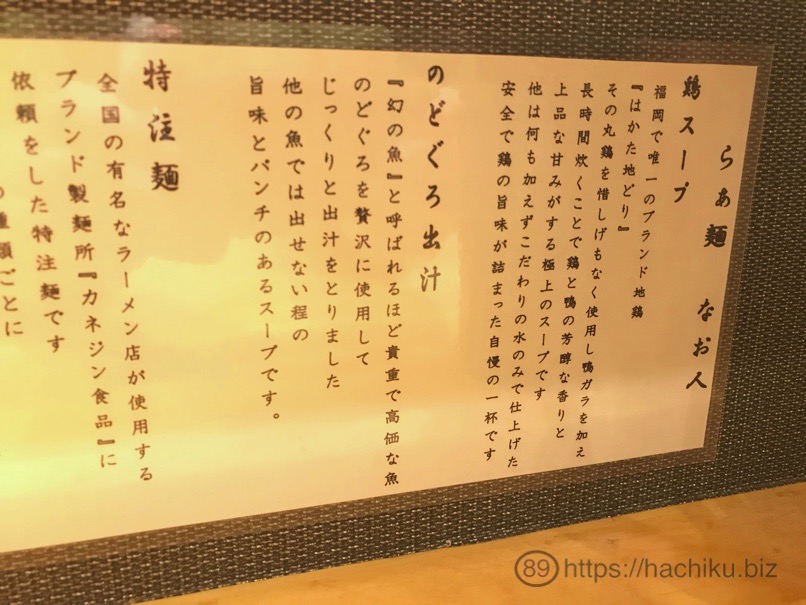 らぁ麺 なお人
鶏スープ
福岡で唯一のブランド地鶏
『はかた地どり』
その丸鶏を惜しげもなく使用し鴨ガラを加え
長時間炊くことで鶏と鴨の芳醇な香りと
上品な甘みがする極上のスープです
他は何も加えずこだわりの水のみで仕上げた
安全で鶏の旨味が詰まった自慢の一杯です
のどぐろ出汁
『幻の魚』と呼ばれるほど貴重で高価な魚
のどぐろを贅沢に使用して
じっくりと出汁をとりました
他の魚では出せない程の
旨味とパンチのあるスープです。
特注麺
全国の有名なラーメン店が使用する
ブランド製麺所『カネジン食品』に
依頼をした特注麺です
種類ごとに
89 https://hachiku.biz